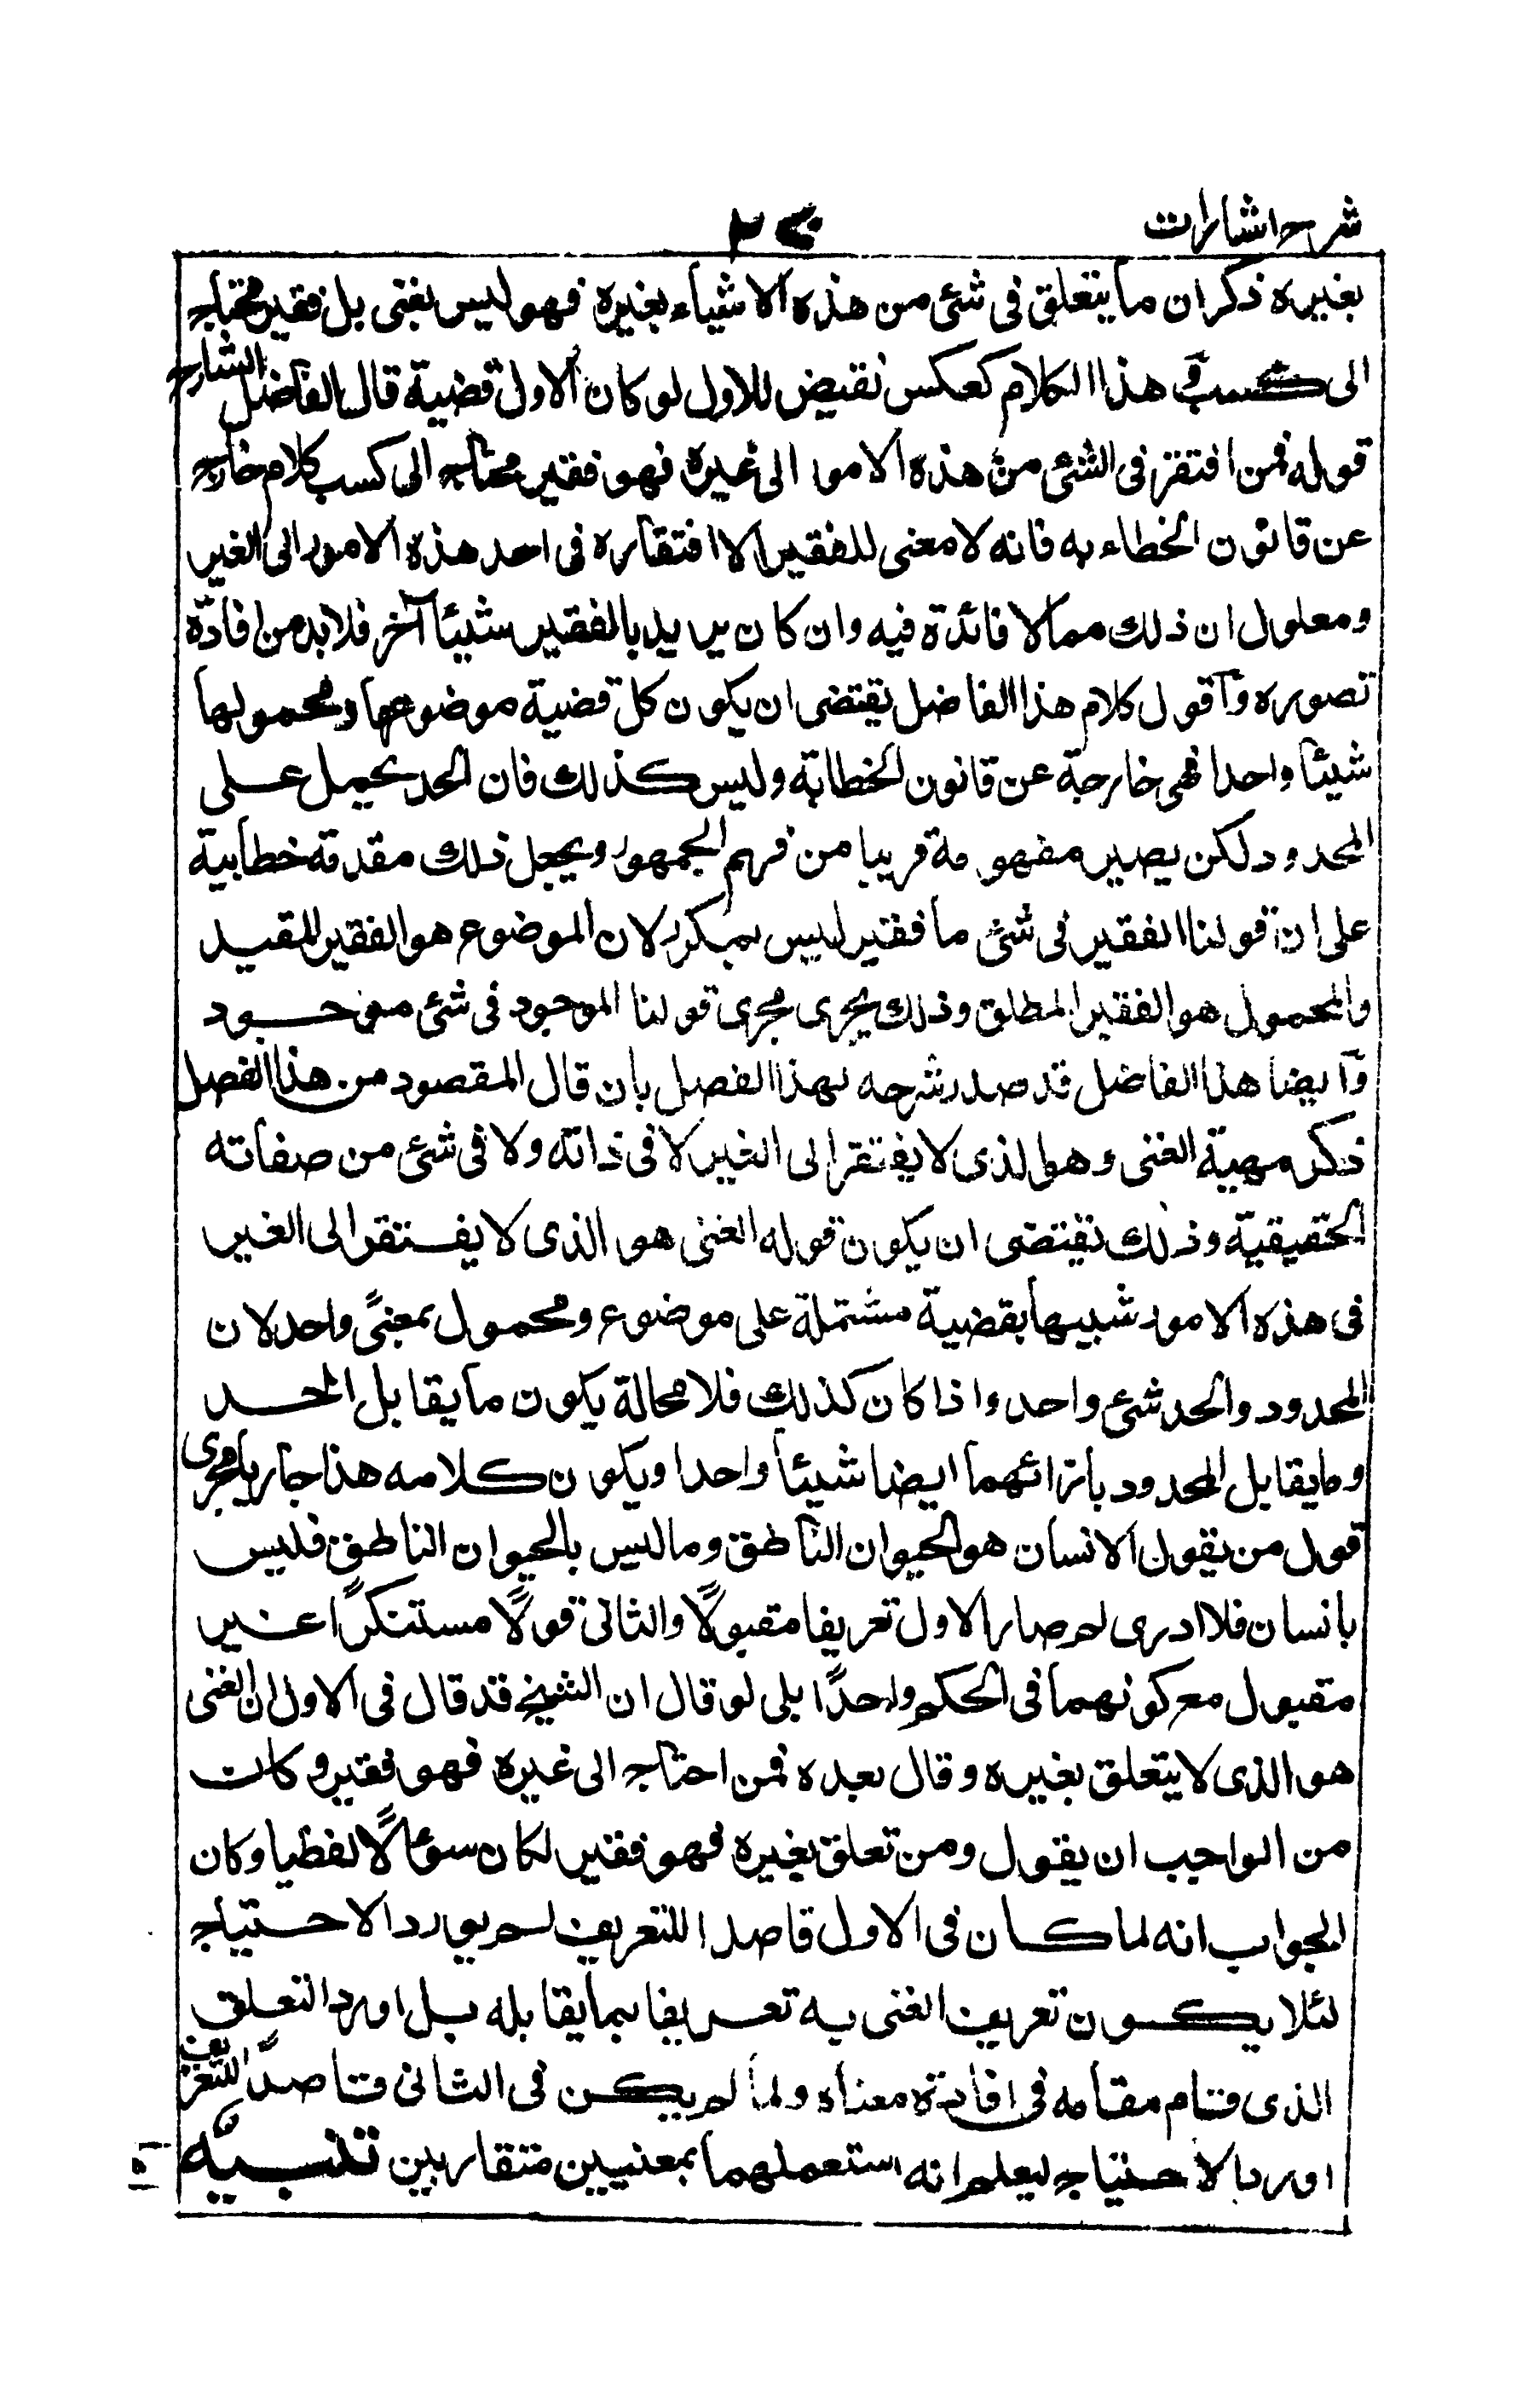 شرح اشارات
بغيره ذكر ان ما يتعلق فى شئ من هذه الاشياء بغيره فهو ليس بغنى بل فقير محتاج
الى كسب هذا الكلام كعكس نقيض للاول لو كان الاول قضية قال الفاضل الشارح
قوله فمن افتقر فى الشئ من هذه الامور الى غيره فهو فقير محتاج الى كسب كلام خارج
عن قانون الخطابة فانه لا معنى للفقير الا افتقاره فى احد هذه الامور الى الغير
ومعلول ان ذلك مما لا فائدة فيه وان كان يريد بالفقير شيئا آخر فلا بد من افادة
تصوره وآقول كلام هذا الفاضل يقتضى ان يكون كل قضية موضوعها ومحمولها
شيئا واحدا فهى خارجة عن قانون الخطابة وليس كذلك فان الحد يحمل على
المحدود لكن يصير مفهومة قريبا من فهم الجمهور ويجعل ذلك مقدمة خطابية
على ان قولنا الفقير فى شئ ما فقير ليس بمكرر لان الموضوع هو الفقير المقيد
والمحمول هو الفقير المطلق وذلك يجرى مجرى قولنا الموجود فى شئ موجود
وآيضا هذا الفاضل قد صدر شرحه لهذا الفصل بان قال المقصود من هذا الفصل
ذكر مهية الغنى وهو الذى لا يفتقر الى الغير لا فى ذاته ولا فى شئ من صفاته
الحقيقية وذلك يقتضى ان يكون قوله الغنى هو الذى لا يفتقر الى الغير
فى هذه الامور شبيها بقضية مشتملة على موضوع ومحمول بمعنًى واحد لان
المحدود والحد شئ واحد واذا كان كذلك فلا محالة يكون ما يقابل الحد
وما يقابل المحدود بازائهما ايضا شيئا واحدا ويكون كلامه هذا جاريا مجرى
قول من يقول الانسان هو الحيوان الناطق وما ليس بالحيوان الناطق فليس
بانسان فلا ادرى لم صار الاول تعريفا مقبولًا والثانى قولًا مستنكرًا غير
مقبول مع كونهما فى الحكم واحدًا بلى لو قال ان الشيخ قد قال فى الاول ان الغنى
هو الذى لا يتعلق بغيره وقال بعده فمن احتاج الى غيره فهو فقير وكان
من الواجب ان يقول ومن تعلق بغيره فهو فقير لكان سؤالًا لفظيا وكان
الجواب انه لما كان فى الاول قاصدا للتعريف لم يورد الاحتياج
لئلا يكون تعريف الغنى به تعريفا بما يقابله بل اورد التعلق
الذى قام مقامه فى افادة معناه ولما لم يكن فى الثانى قاصدًا للتعريف
اورد الاحتياج ليعلم انه استعملهما بمعنيين متقاربين تنبيه